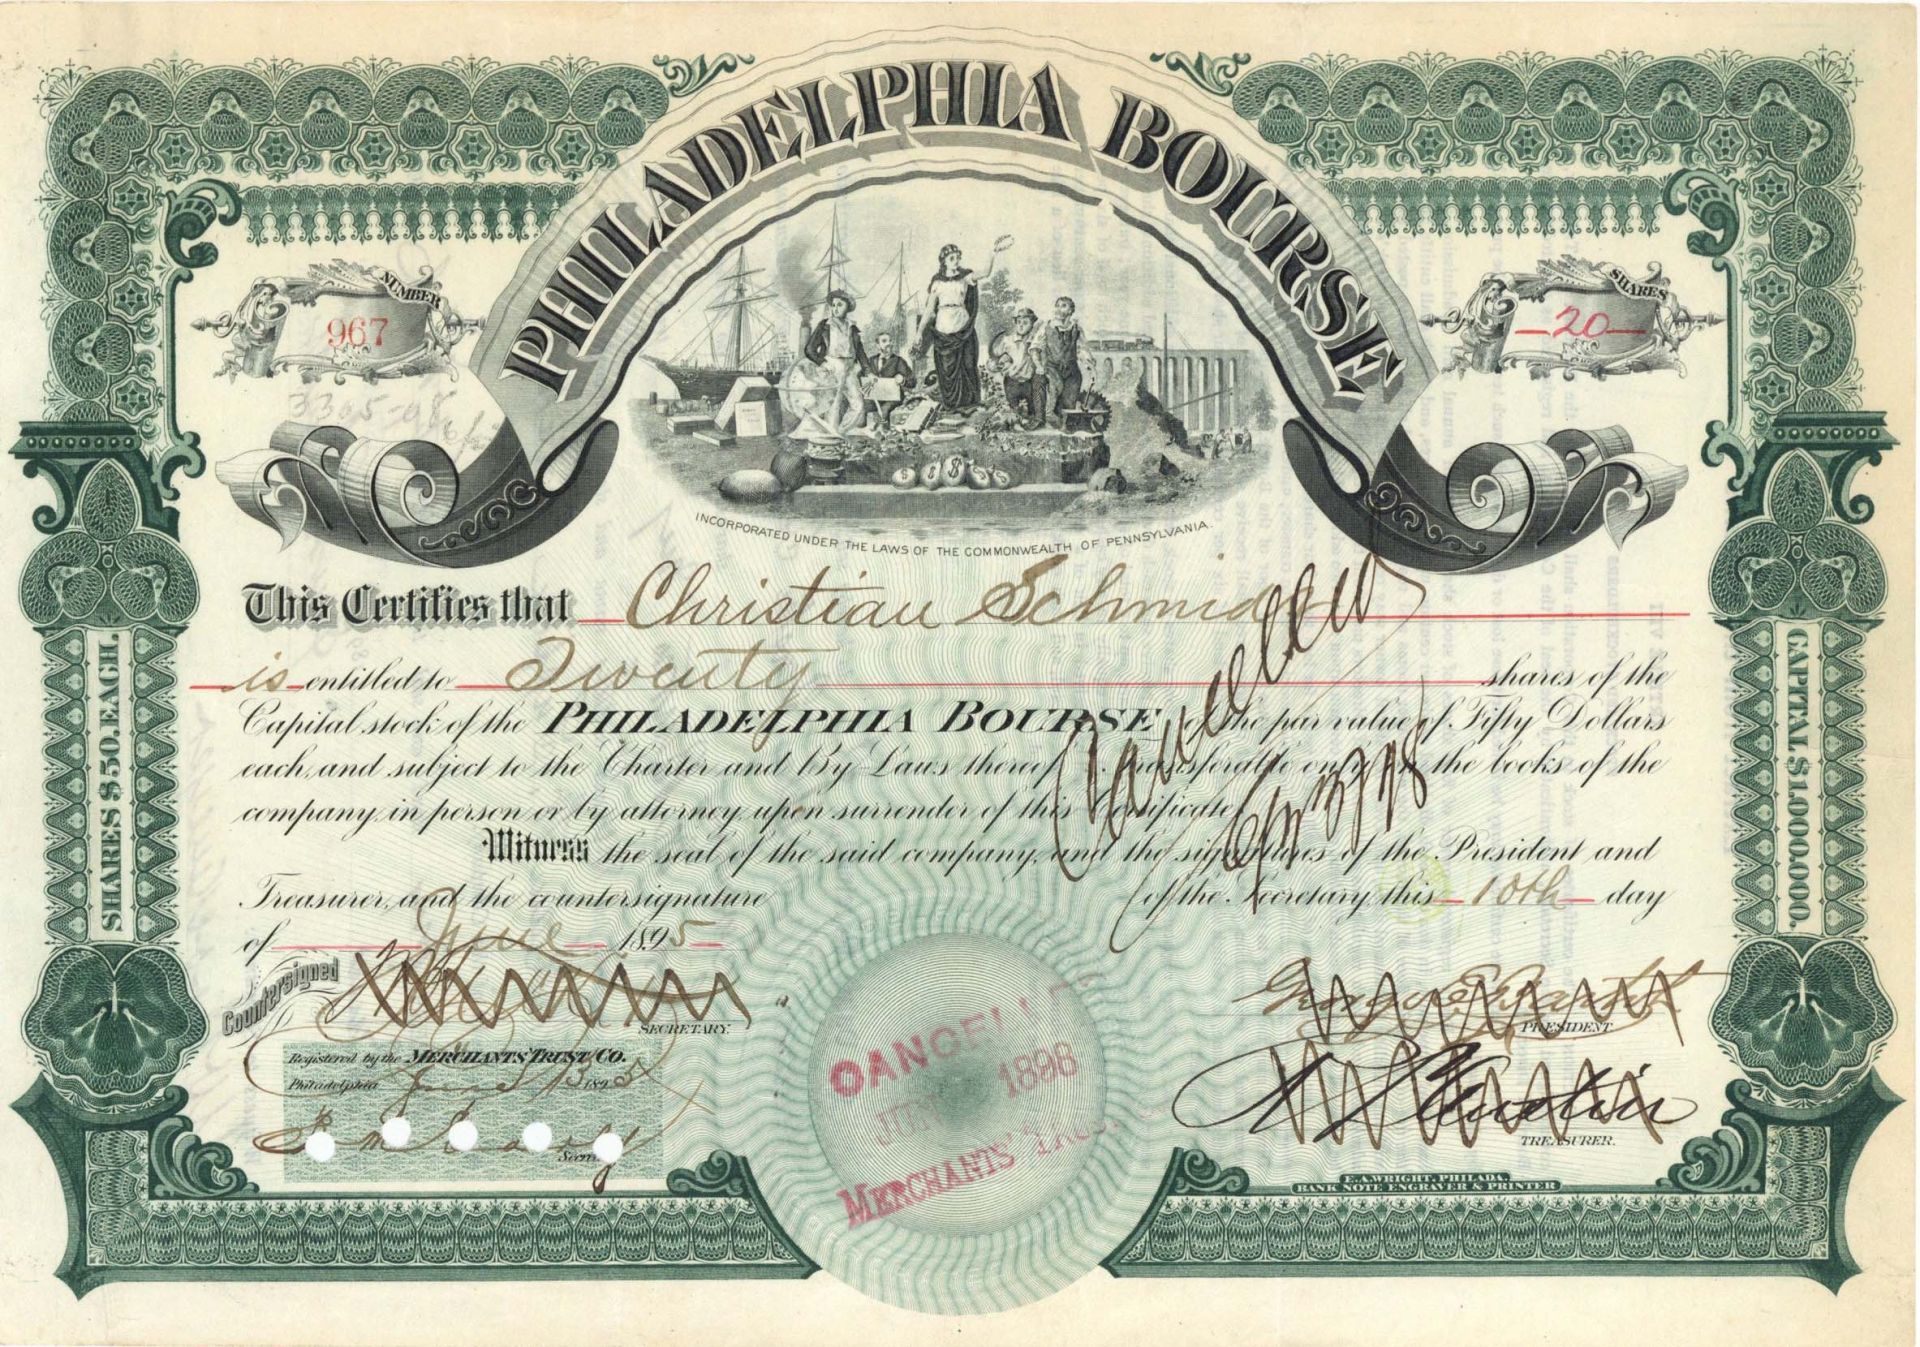 PHILADELPHIA BOURSE
NUMBER
967
SHARES
20
INCORPORATED UNDER THE LAWS OF THE COMMONWEALTH OF PENNSYLVANIA.
This Certifies that Christian Schmidt
is entitled to Twenty shares of the
Capital stock of the PHILADELPHIA BOURSE of the par value of Fifty Dollars
each, and subject to the Charter and By-Laws thereof transferable only on the books of the
company, in person or by attorney upon surrender of this Certificate
Witness the seal of the said company, and the signatures of the President and
Treasurer, and the countersignature of the Secretary, this 10th day
of June 1895
Cancelled
Countersigned
SECRETARY.
PRESIDENT
Registered by the MERCHANTS' TRUST CO.
Philadelphia June 13 1895
TREASURER.
CANCELLED
1898
MERCHANTS' TRUST
E.A. WRIGHT, PHILADA.
BANK NOTE ENGRAVER & PRINTER
SHARES $50. EACH.
CAPITAL $1,000,000.